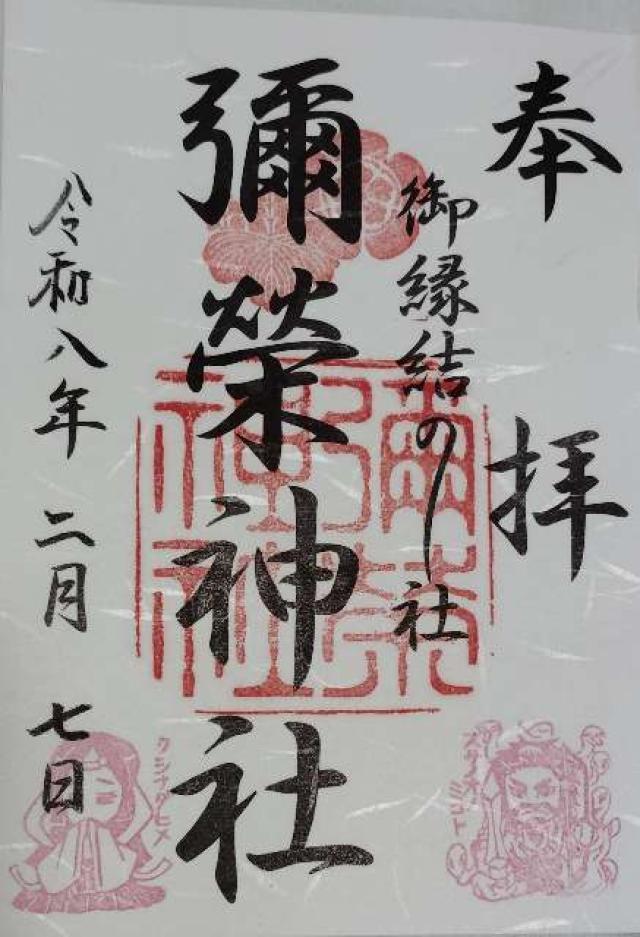 奉拝
御縁結のし社
彌榮神社
令和八年二月七日
彌榮神社
スサノオノミコト
クシナダヒメ